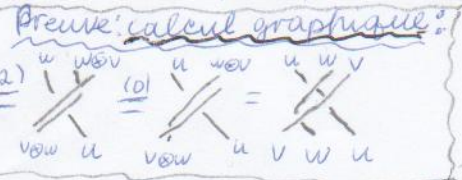 Preuve: calcul graphique:
u w⊗v u w⊗v u w v
2) = (0) = =
v⊗w u v⊗w u v w u